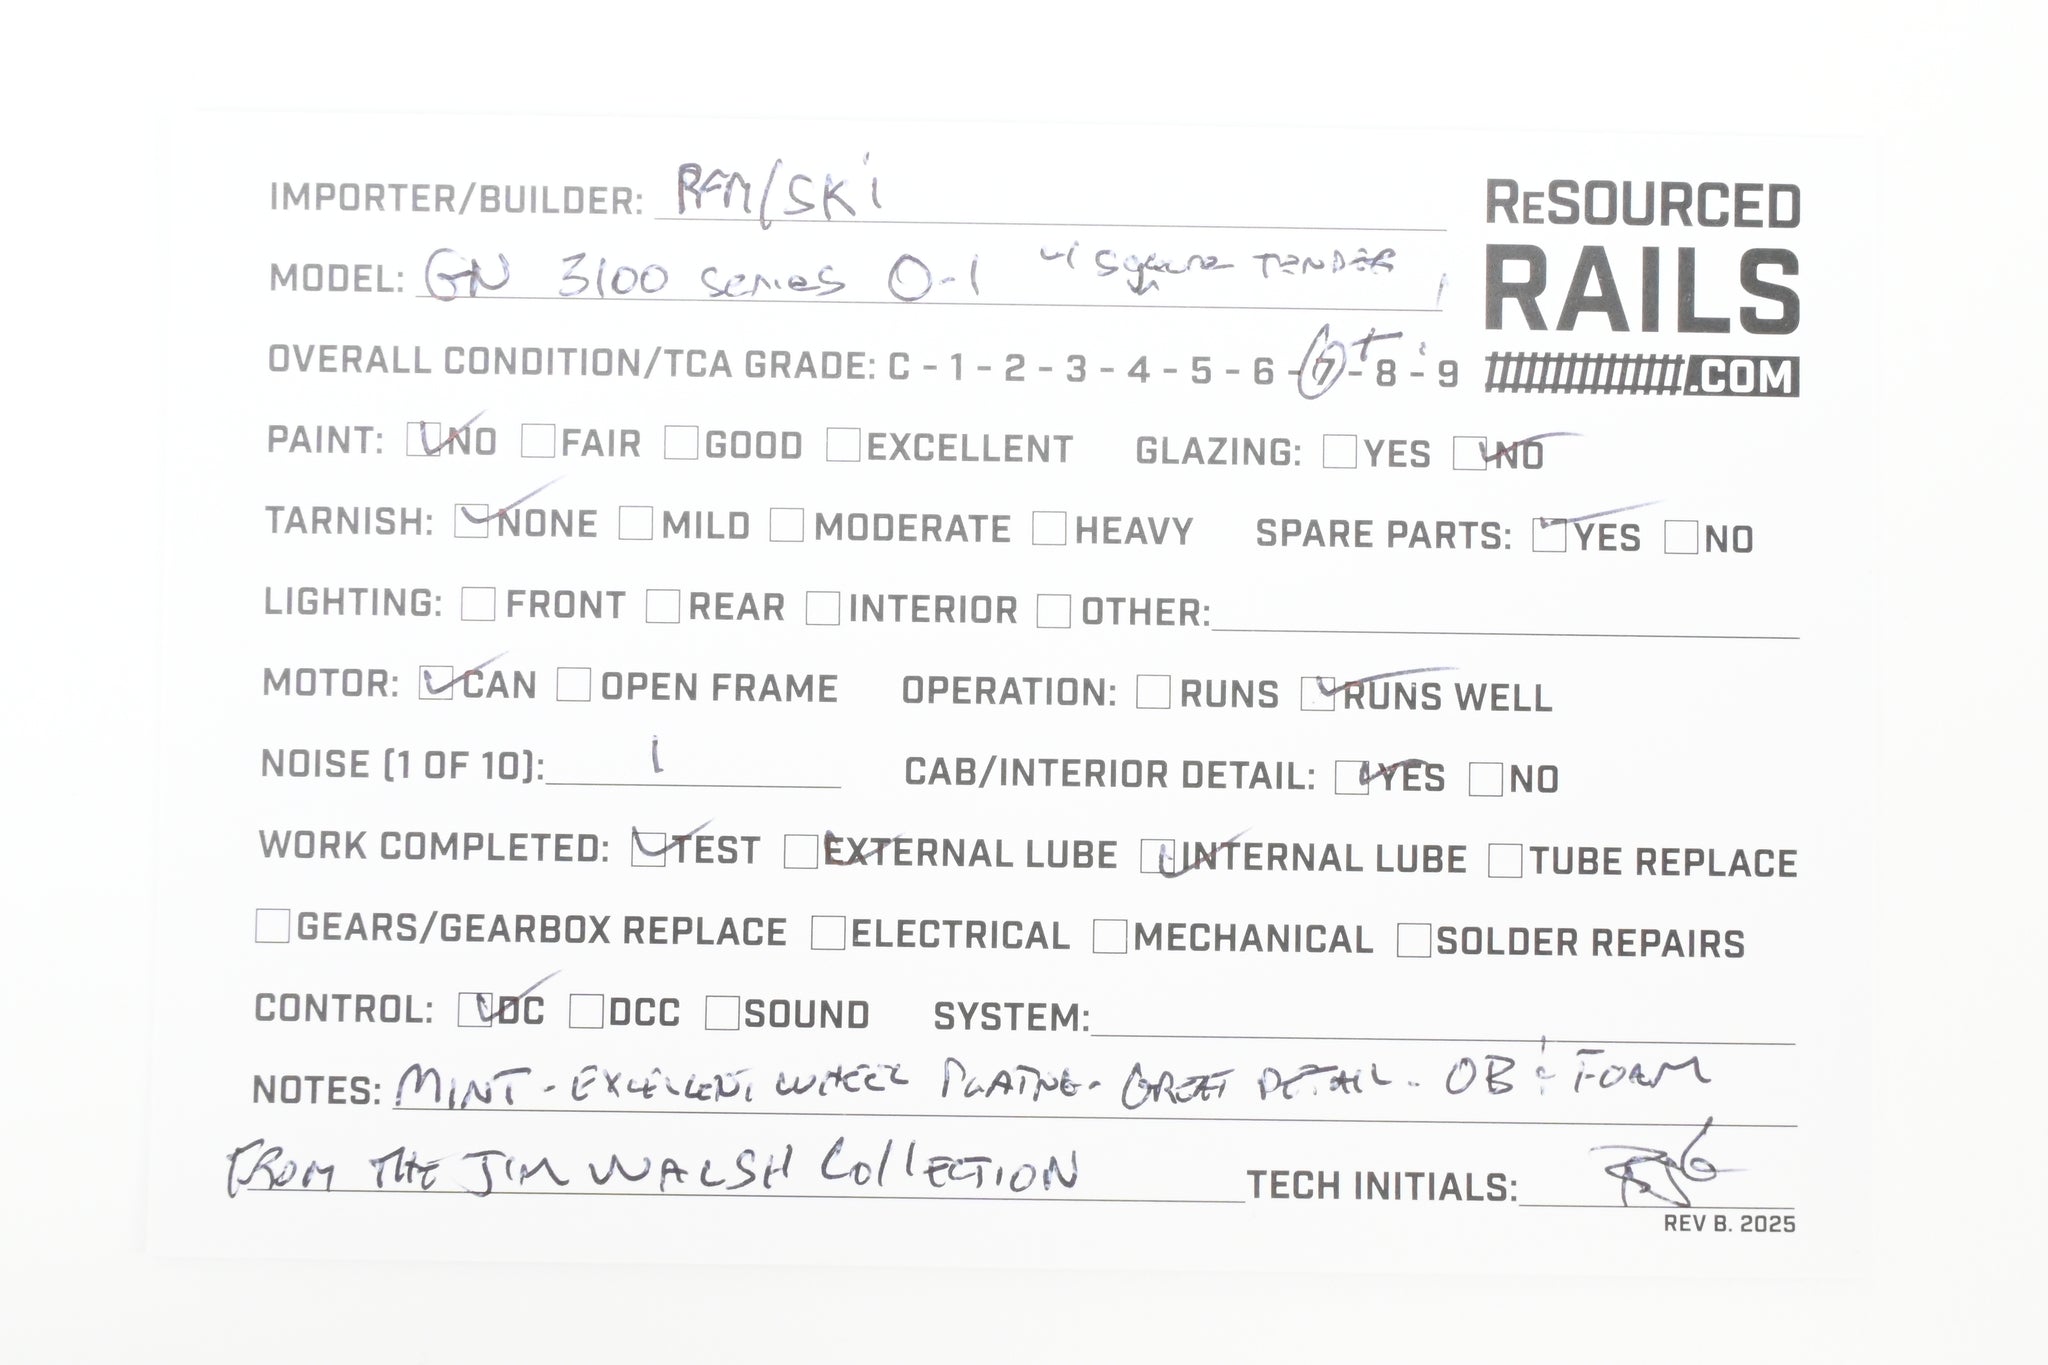 IMPORTER/BUILDER: PFM/SKI
RESOURCED
RAILS
.COM
MODEL: GN 3100 series O-1 w/ Square TENDER
OVERALL CONDITION/TCA GRADE: C - 1 - 2 - 3 - 4 - 5 - 6 - 7+ - 8 - 9
PAINT: NO FAIR GOOD EXCELLENT GLAZING: YES NO
TARNISH: NONE MILD MODERATE HEAVY SPARE PARTS: YES NO
LIGHTING: FRONT REAR INTERIOR OTHER:
MOTOR: CAN OPEN FRAME OPERATION: RUNS RUNS WELL
NOISE (1 OF 10): 1 CAB/INTERIOR DETAIL: YES NO
WORK COMPLETED: TEST EXTERNAL LUBE INTERNAL LUBE TUBE REPLACE
GEARS/GEARBOX REPLACE ELECTRICAL MECHANICAL SOLDER REPAIRS
CONTROL: DC DCC SOUND SYSTEM:
NOTES: MINT - EXCELLENT WHEEL PLATING - GREAT DETAIL - OB & FOAM
FROM THE JIM WALSH COLLECTION TECH INITIALS:
REV B. 2025